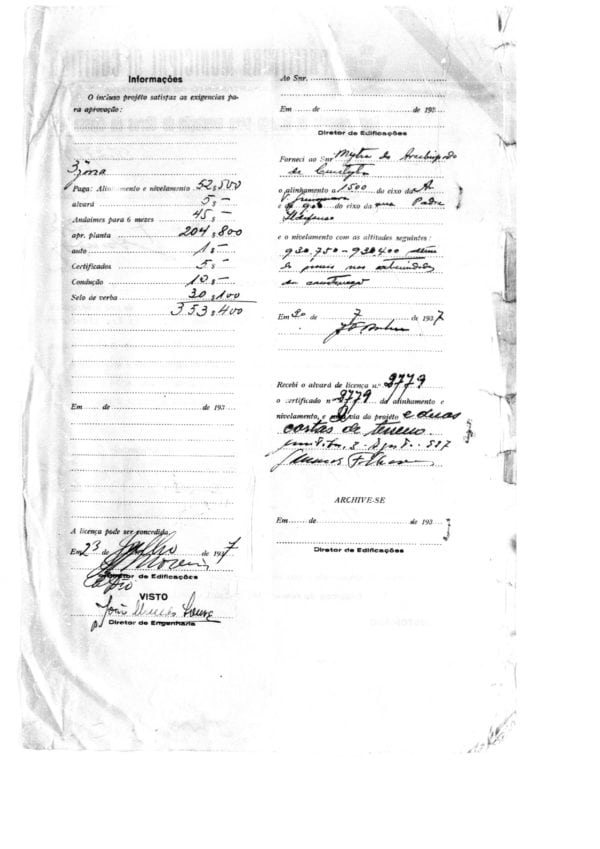 Informações
O incluso projéto satisfas as exigencias pa-
ra aprovação:
3ª zona
Paga: Alinhamento e nivelamento 52$500
alvará 5$—
Andaimes para 6 mezes 45$—
apr. planta 204$800
auto 1$—
Certificados 5$—
Condução 10$—
Selo de verba 30$100
353$400
Em de de 193
A licença póde ser concedida.
Em 23 de Julho de 1937
Diretor de Edificações
VISTO
Diretor de Engenharia
Ao Snr.
Em de de 193
Diretor de Edificações
Forneci ao Snr Mytra do Arcebispado
de Curityba
o alinhamento a 1500 do eixo da Av.
e a do eixo da rua Padre
Ildefonso
e o nivelamento com as altitudes seguintes:
930,750 – 930,400
Em 20 de 7 de 1937
Recebi o alvará de licença n.º 2779
o certificado n 2779 da alinhamento e
nivelamento, e via do projéto e duas
cartas de terreno
ARCHIVE-SE
Em de de 193
Diretor de Edificações